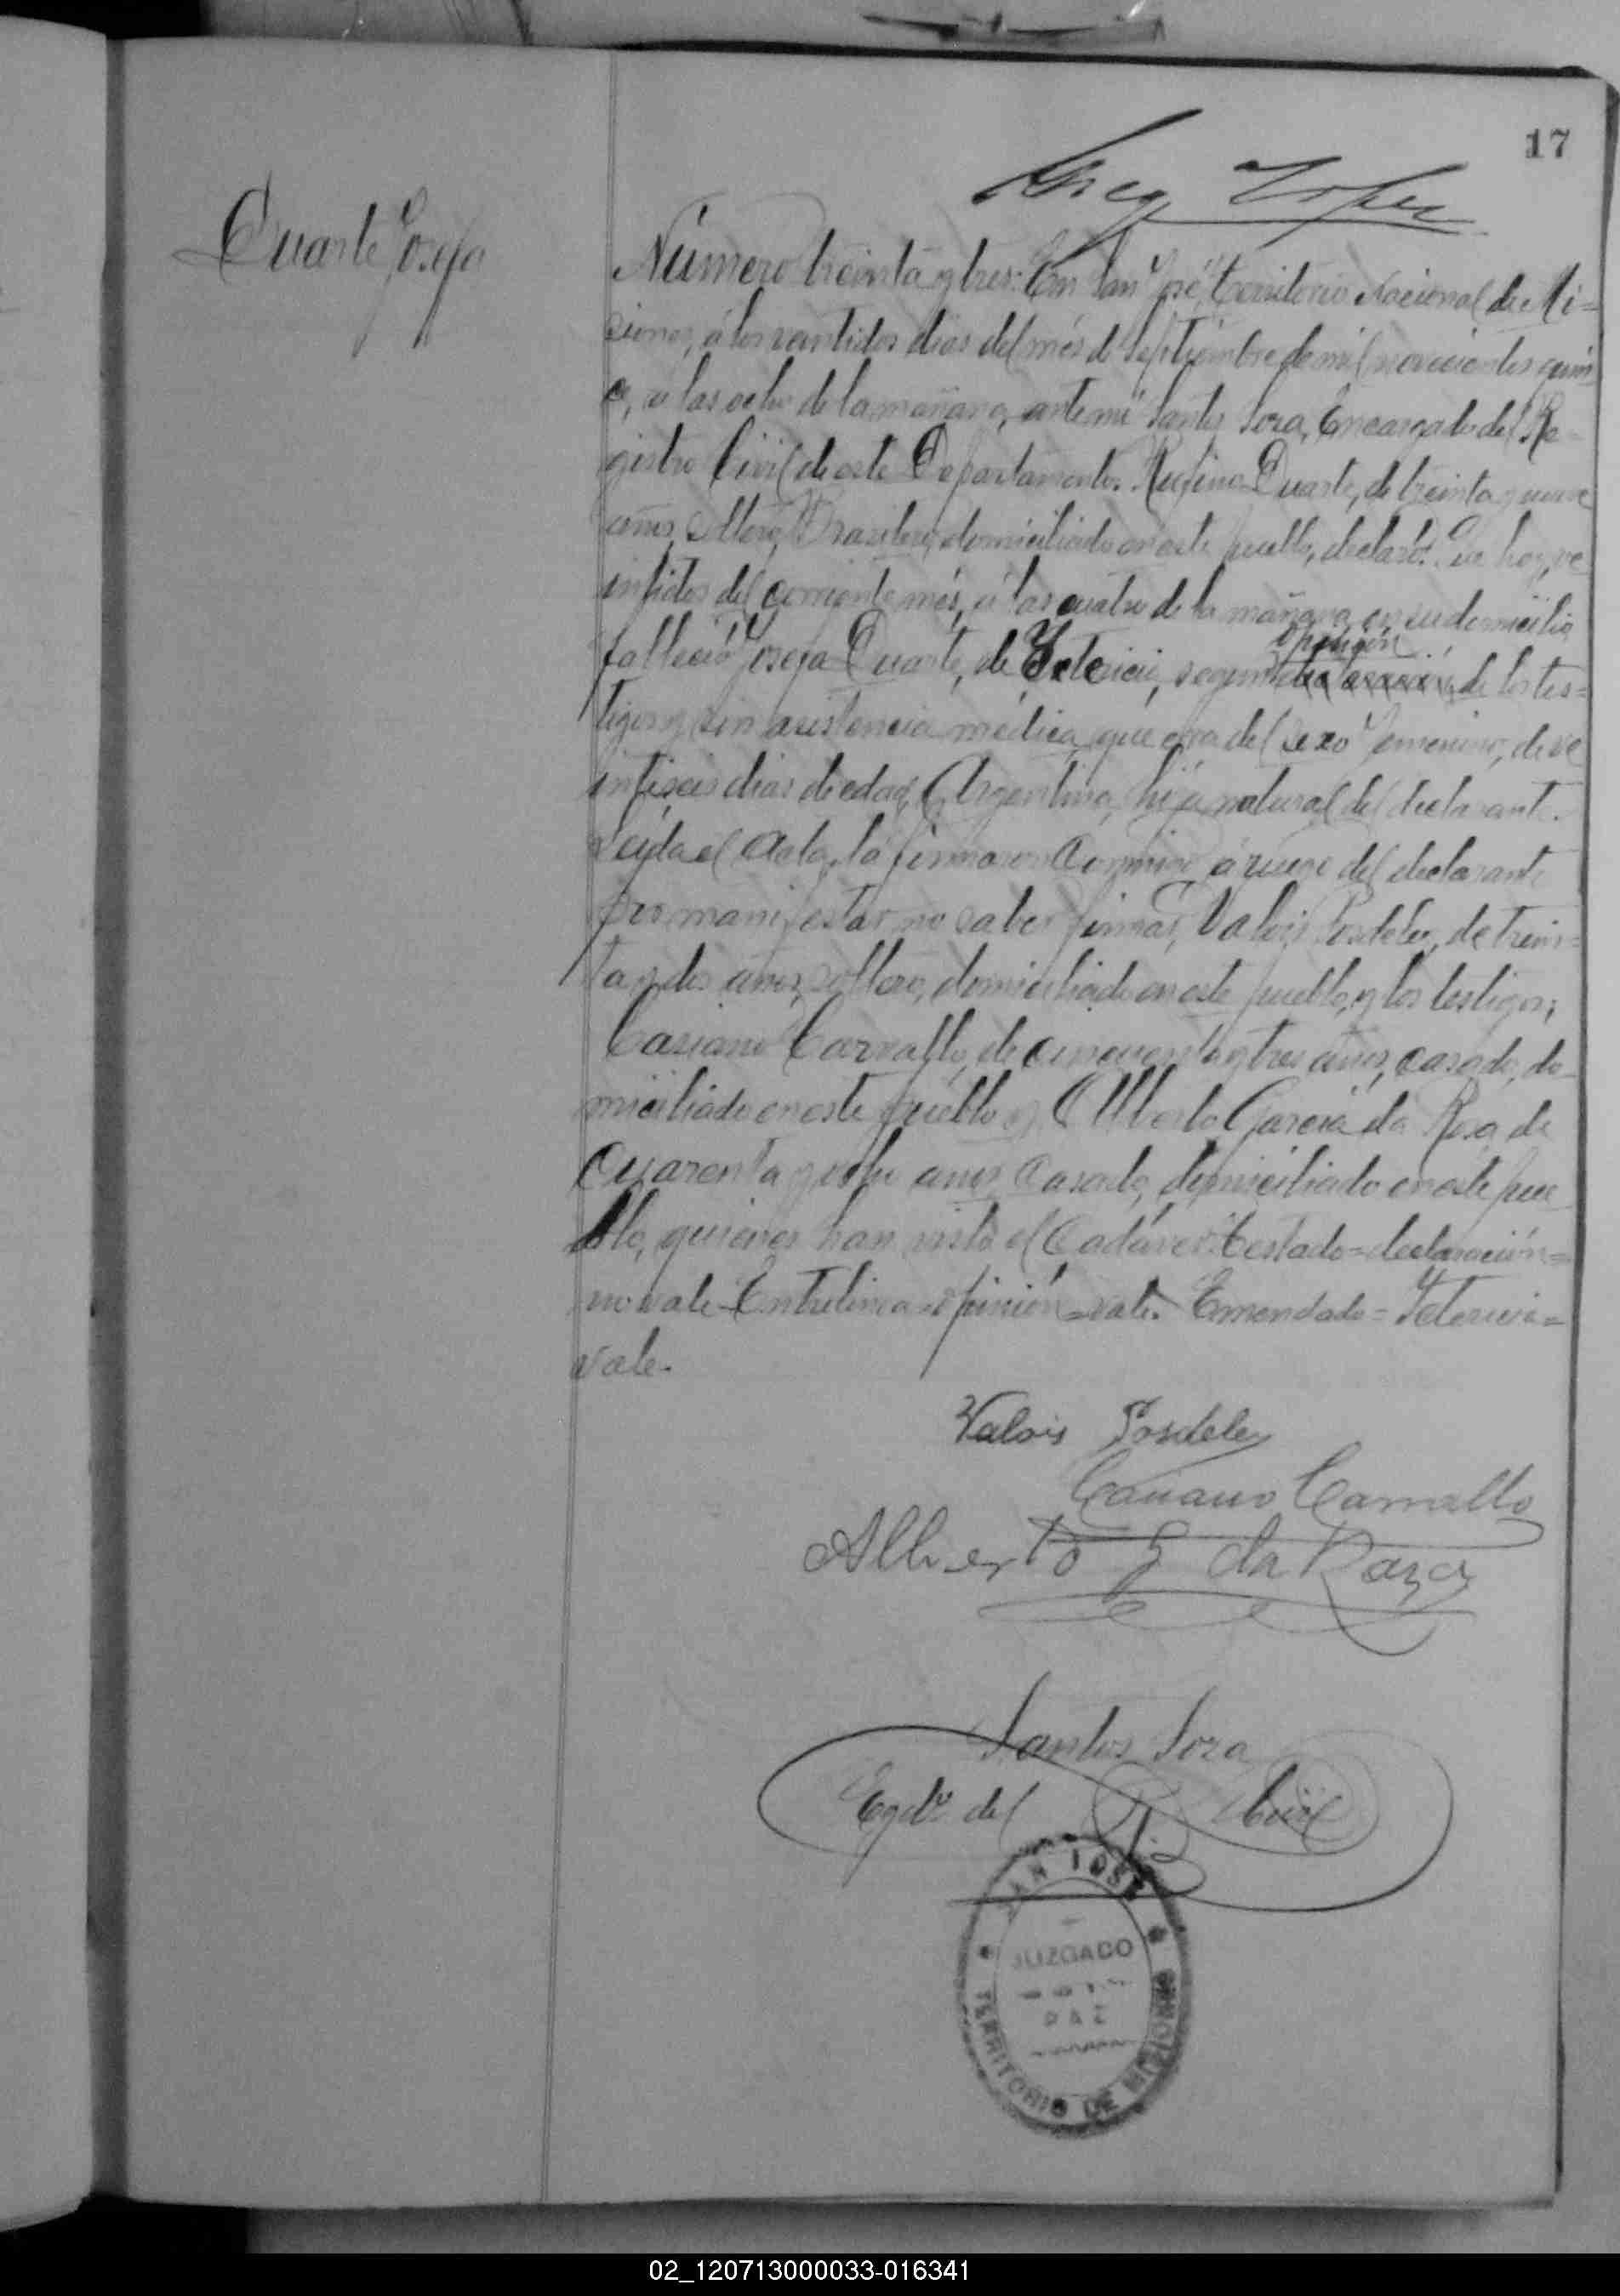 17
Duarte Josefa
Número treinta y tres: En San José, Territorio Nacional de Mi=
siones, á los ventidos dias del més de Septiembre de mil novecientos quin
ce, á las ocho de la mañana, ante mí Santos Sora, Encargado del Re-
gistro Civil de este Departamento. Rufino Duarte, de treinta y nueve
años, soltero, Brasilero, domiciliado en este pueblo, declaró: Que hoy, ve
intidos del corriente més, á las cuatro de la mañana, en su domicilio
opinión
falleció Josefa Duarte, de Ictericia, segun declaración de los tes=
tigos y sin asistencia médica, que era del sexo femenino, de ve
intiseis dias de edad, Argentina, hija natural del declarante.
Leyda el Acta, la firmaron conmigo, á ruego del declarante
por manifestar no saber firmar, Valois Posdeley, de trein=
ta y dos años, soltero, domiciliado en este pueblo, y los testigos,
Casiano Carvallo, de cincuenta y tres años, casado, do-
miciliado en este pueblo y Alberto Garcia da Rosa, de
cuarenta y ocho años, casado, domiciliado en este pue
blo, quienes han visto el Cadáver. Testado=declaración=
no vale. Entrelinea=opinión=vale. Emendado=Ictericia=
vale.
Valois Posdeley
Casiano Carvallo
Alberto G da Roza
Santos Sora
Egdo. del R. Civil
SAN JOSÉ
JUZGADO
PAZ
TERRITORIO DE MISIONES
02_120713000033-016341